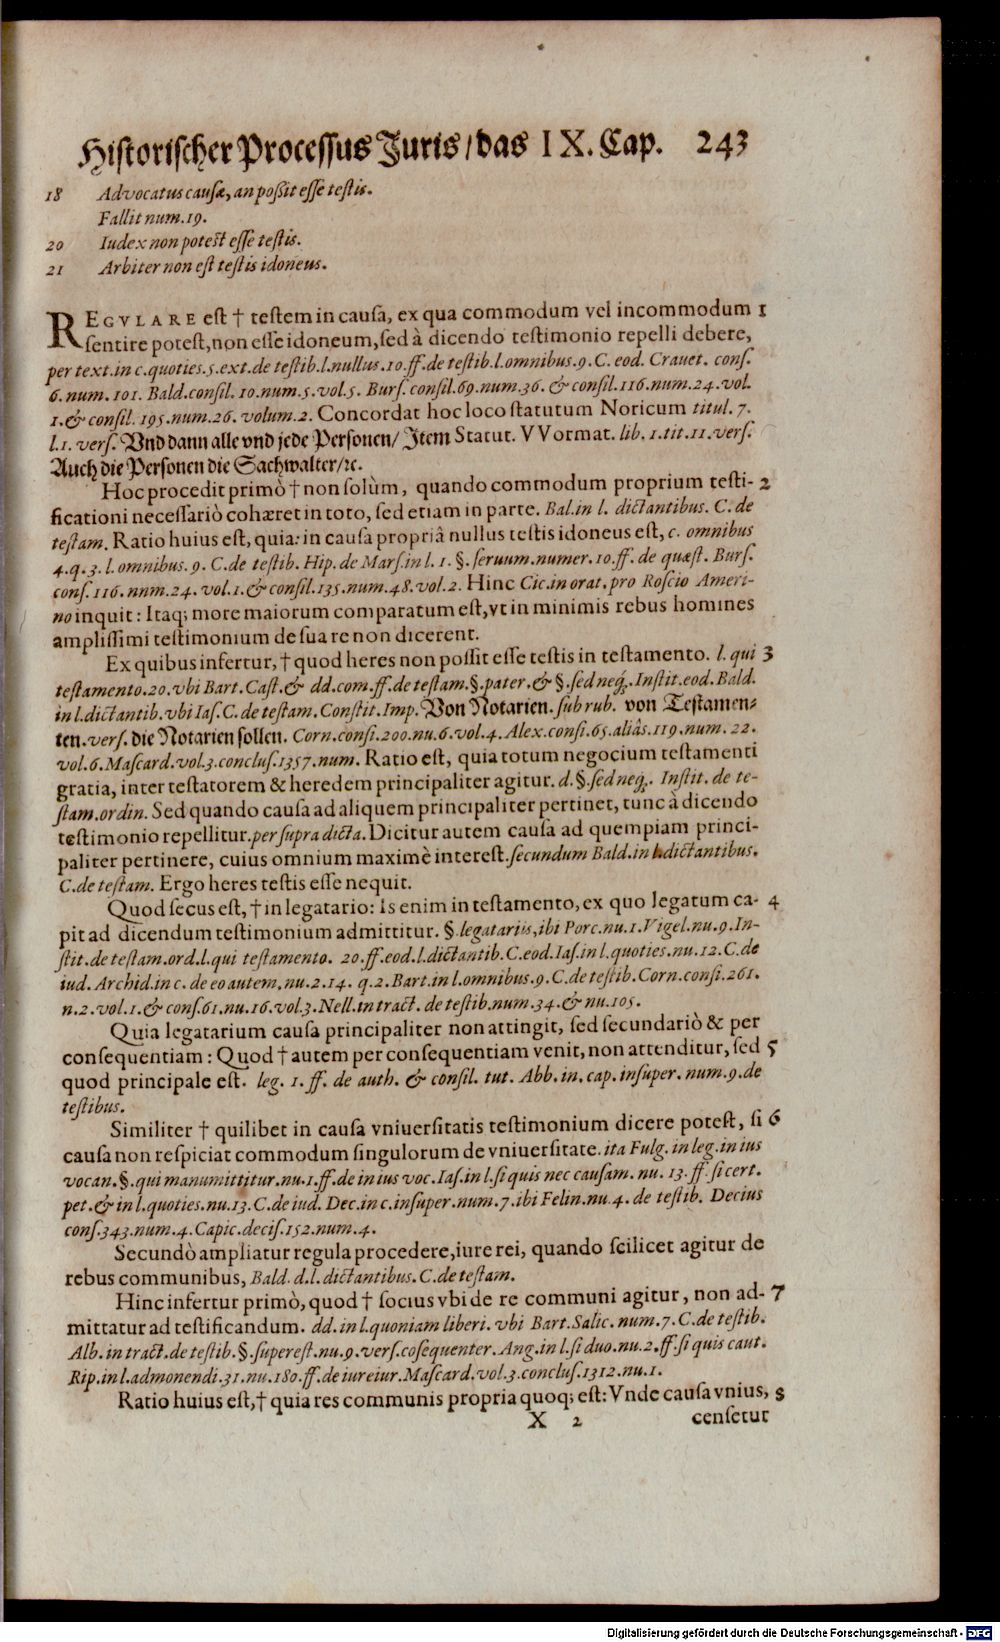 Historischer Processus Juris/das IX. Cap. 243
18 Advocatus causæ, an poßit esse testis.
Fallit num.19.
20 Iudex non potest esse testis.
21 Arbiter non est testis idoneus.
REGVLARE est † testem in causa, ex qua commodum vel incommodum 1
sentire potest, non esse idoneum, sed à dicendo testimonio repelli debere,
per text.in c.quoties.5.ext.de testib.l.nullus.10.ff.de testib.l.omnibus.9.C.eod. Crauet. cons.
6.num.101. Bald.consil.10.num.5.vol.5. Burs.consil.69.num.36. & consil.116.num.24.vol.
1.& consil.195.num.26.volum.2. Concordat hoc loco statutum Noricum titul. 7.
l.1. vers. Vnd dann alle vnd jede Personen/ Item Statut. VVormat. lib. 1.tit.11.vers.
Auch die Personen die Sachwalter/ꝛc.
Hoc procedit primò † non solùm, quando commodum proprium testi- 2
ficationi necessariò cohæret in toto, sed etiam in parte. Bal.in l. dictantibus. C. de
testam. Ratio huius est, quia: in causa propriâ nullus testis idoneus est, c. omnibus
4.q.3.l.omnibus.9. C.de testib. Hip.de Mars.in l. 1. §. seruum.numer.10.ff. de quæst. Burs.
cons.116.nnm.24.vol.1.& consil.135.num.48.vol.2. Hinc Cic.in orat.pro Roscio Ameri-
no inquit: Itaq; more maiorum comparatum est, vt in minimis rebus homines
amplissimi testimonium de sua re non dicerent.
Ex quibus infertur, † quod heres non possit esse testis in testamento. l. qui 3
testamento.20.vbi Bart. Cast.& dd.com.ff.de testam.§.pater.& §.sed neq;. Instit.eod.Bald.
in l.dictantib.vbi Ias.C.de testam.Constit.Imp. Von Notarien. sub rub. von Testamen-
ten. vers. die Notarien sollen. Corn.consi.200.nu.6.vol.4. Alex.consi.65.aliâs.119.num.22.
vol.6.Mascard.vol.3.conclus.1357.num. Ratio est, quia totum negocium testamenti
gratia, inter testatorem & heredem principaliter agitur. d.§.sed neq;. Instit. de te-
stam.ordin. Sed quando causa ad aliquem principaliter pertinet, tunc à dicendo
testimonio repellitur. per supra dicta. Dicitur autem causa ad quempiam princi-
paliter pertinere, cuius omnium maximè interest. secundum Bald.in l.dictantibus.
C.de testam. Ergo heres testis esse nequit.
Quod secus est, † in legatario: is enim in testamento, ex quo legatum ca- 4
pit ad dicendum testimonium admittitur. §.legatariis,ibi Porc.nu.1.Vigel.nu.9.In-
stit.de testam.ord.l.qui testamento. 20.ff.eod.l.dictantib.C.eod.Ias.in l.quoties.nu.12.C.de
iud. Archid.in c. de eo autem,nu.2.14. q.2.Bart.in l.omnibus.9.C.de testib.Corn.consi.261.
n.2.vol.1.& cons.61.nu.16.vol.3.Nell.in tract. de testib.num.34.& nu.105.
Quia legatarium causa principaliter non attingit, sed secundariò & per
consequentiam: Quod † autem per consequentiam venit, non attenditur, sed 5
quod principale est. leg. 1. ff. de auth. & consil. tut. Abb. in. cap. insuper. num.9.de
testibus.
Similiter † quilibet in causa vniuersitatis testimonium dicere potest, si 6
causa non respiciat commodum singulorum de vniuersitate. ita Fulg. in leg. in ius
vocan.§.qui manumittitur.nu.1.ff.de in ius voc.Ias.in l.si quis nec causam. nu. 13. ff. si cert.
pet.& in l.quoties.nu.13.C.de iud. Dec.in c.insuper.num.7.ibi Felin.nu.4. de testib. Decius
cons.343.num.4.Capic.decis.152.num.4.
Secundò ampliatur regula procedere, iure rei, quando scilicet agitur de
rebus communibus, Bald. d.l. dictantibus. C.de testam.
Hinc infertur primò, quod † socius vbi de re communi agitur, non ad- 7
mittatur ad testificandum. dd. in l.quoniam liberi. vbi Bart.Salic. num.7. C.de testib.
Alb. in tract.de testib.§.superest.nu.9.vers.cosequenter. Ang.in l.si duo.nu.2.ff.si quis caut.
Rip.in l.admonendi.31.nu.180.ff.de iureiur.Mascard.vol.3.conclus.1312.nu.1.
Ratio huius est, † quia res communis propria quoq; est: Vnde causa vnius, 8
X 2 censetur
Digitalisierung gefördert durch die Deutsche Forschungsgemeinschaft - DFG